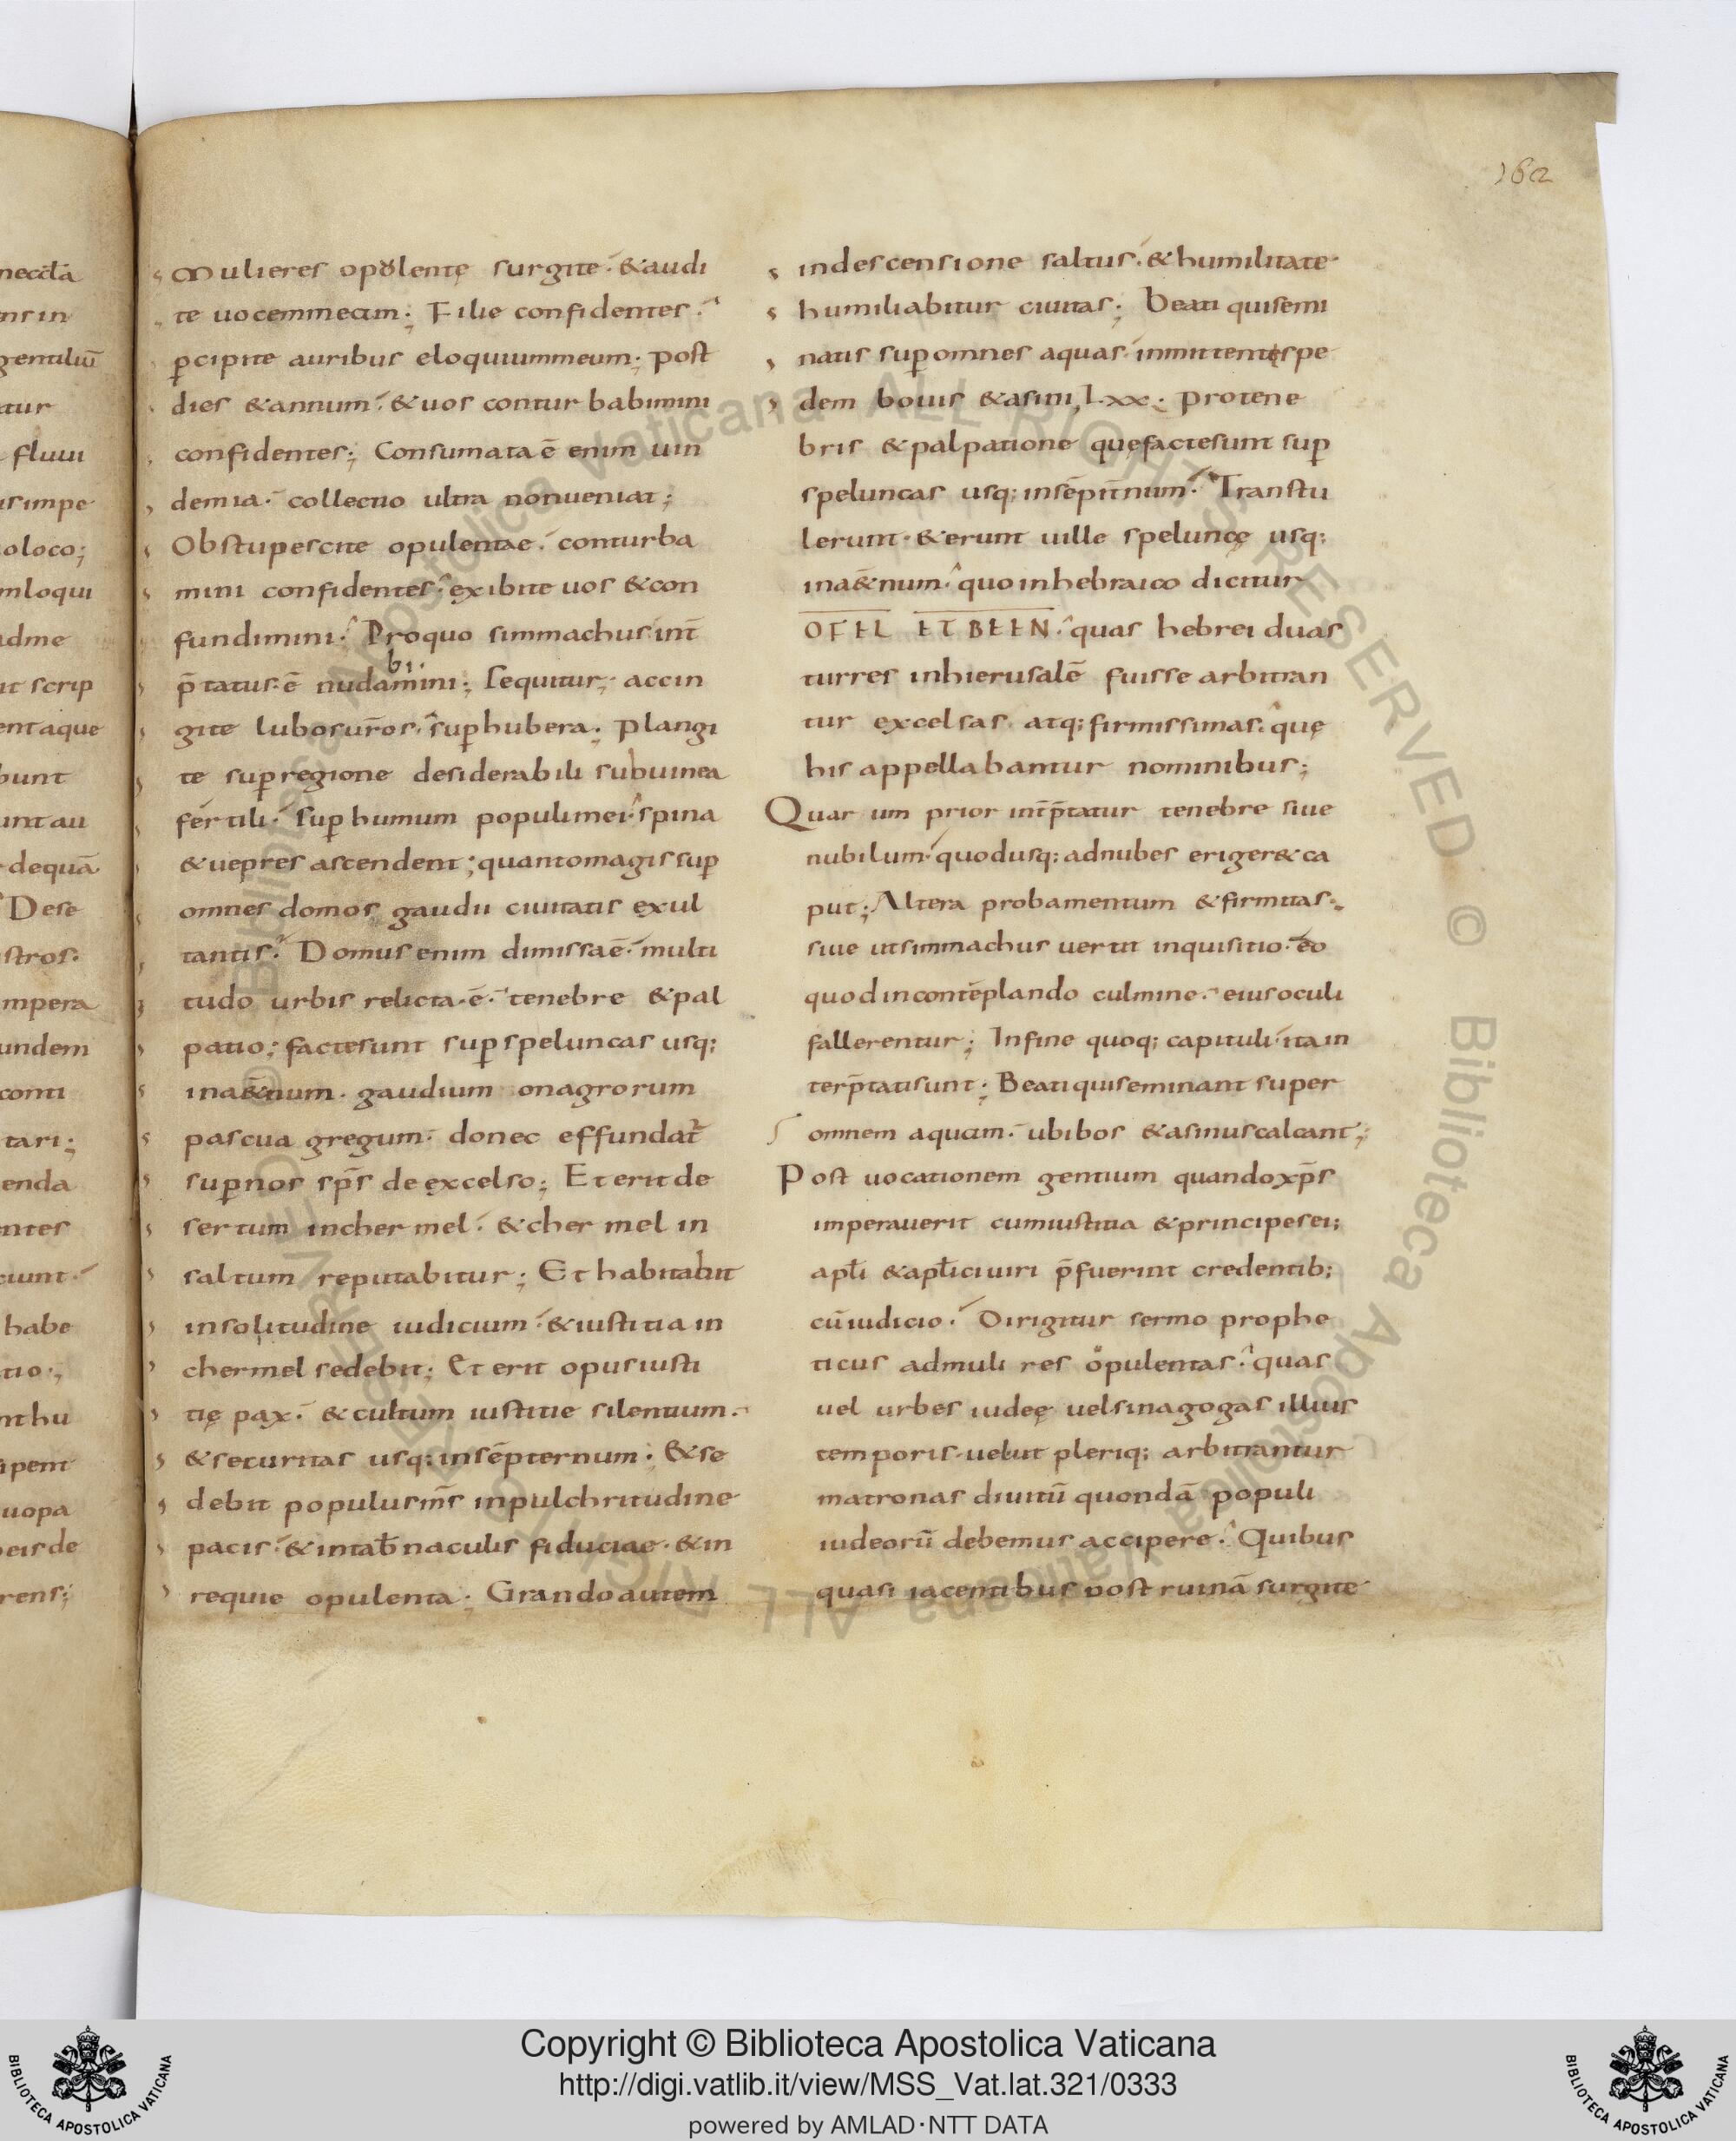 162
neccła
nsin
gentiliū
atur
fluui
usimpe
oloco;
mloqui
adme
it scrip
entaque
bunt
unt au
dequā
Dese
stros.
mpera
undem
conti
tari;
enda
entes
ciunt
habe
tio;
nthu
ipent
uopa
eis de
rens;
Mulieres opulentę surgite. &audi
te uocemmeam; Filie confidentes.
p̄cipite auribus eloquiummeum; post
dies &annum. &uos contur babimini
confidentes; Consumata ē enim uin
demia. collectio ultra nonueniat;
Obstupescite opulentae. conturba
mini confidentes. exibite uos &con
fundimini. Proquo simmachus int̄
p̄tatus.ē nudamini; Sequitur; accin
bi
gite lubosur̄os. suphubera; Plangi
te supregione desiderabili subuinea
fertili. sup humum populimei. spina
&uepres ascendent; quantomagis sup
omnes domos gaudii ciuitatis exul
tantis. Domus enim dimissaē. multi
tudo urbis relicta.ē. tenebre &pal
patio; factesunt sup speluncas usq;
inaet̄num. gaudium onagrorum
pascua gregum. donec effundat̄
supnos sp̄s de excelso; Et erit de
sertum inchermel. &cher mel in
saltum reputabitur; Et habitabit
insolitudine iudicium. &iustitia in
chermel sedebit; Et erit opus iusti
tię pax. &cultum iustitie silentium.
&securitas usq; insēpternum; &se
debit populusm̄s inpulchritudine
pacis. &intab̄naculis fiduciae. &in
requie opulenta; Grandoautem
indescensione saltus. &humilitate
humiliabitur ciuitas; Beati quisemi
natis supomnes aquas. inmittentęspe
dem bouis &asini Lxx; Protene
bris &palpatione quęfactesunt sup
speluncas usq; insēpit̄num. Transtu
lerunt. &erunt uille speluncę usq;
ina&̄num. quoinhebraico dicitur
OFEL ET BEEN. quas hebrei duas
turres inhierusalē fuisse arbitran
tur excelsas atq; firmissimas. quę
his appellabantur nominibus;
Quar um prior int̄p̄tatur tenebre siue
nubilum. quodusq; adnubes eriger& ca
put; Altera probamentum &firmitas.
siue utsimmachus uertit inquisitio. eo
quodincontēplando culmine. eiusoculi
fallerentur; Infine quoq; capituli ita in
terp̄tatisunt; Beatiquiseminant super
omnem aquam. ubibos &asinuscalcant;
Post uocationem gentium quandoxp̄s
imperauerit cumiustitia &principesei;
apłi &apłiciuiri p̄fuerint credentib;
cūiudicio. Dirigitur sermo prophe
ticus admuli res opulentas. quas
uel urbes iudeę uelsinagogas illius
temporis. uelut pleriq; arbitrantur
matronas diuitū quondā populi
iudeorū debemus accipere. Quibus
quasi iacentibus post ruinā surgite
© Biblioteca Apostolica Vaticana ALL RIGHTS RESERVED © Biblioteca Apostolica Vaticana ALL RIGHTS RESERVED
Copyright © Biblioteca Apostolica Vaticana
http://digi.vatlib.it/view/MSS_Vat.lat.321/0333
powered by AMLAD·NTT DATA
BIBLIOTECA APOSTOLICA VATICANA
BIBLIOTECA APOSTOLICA VATICANA